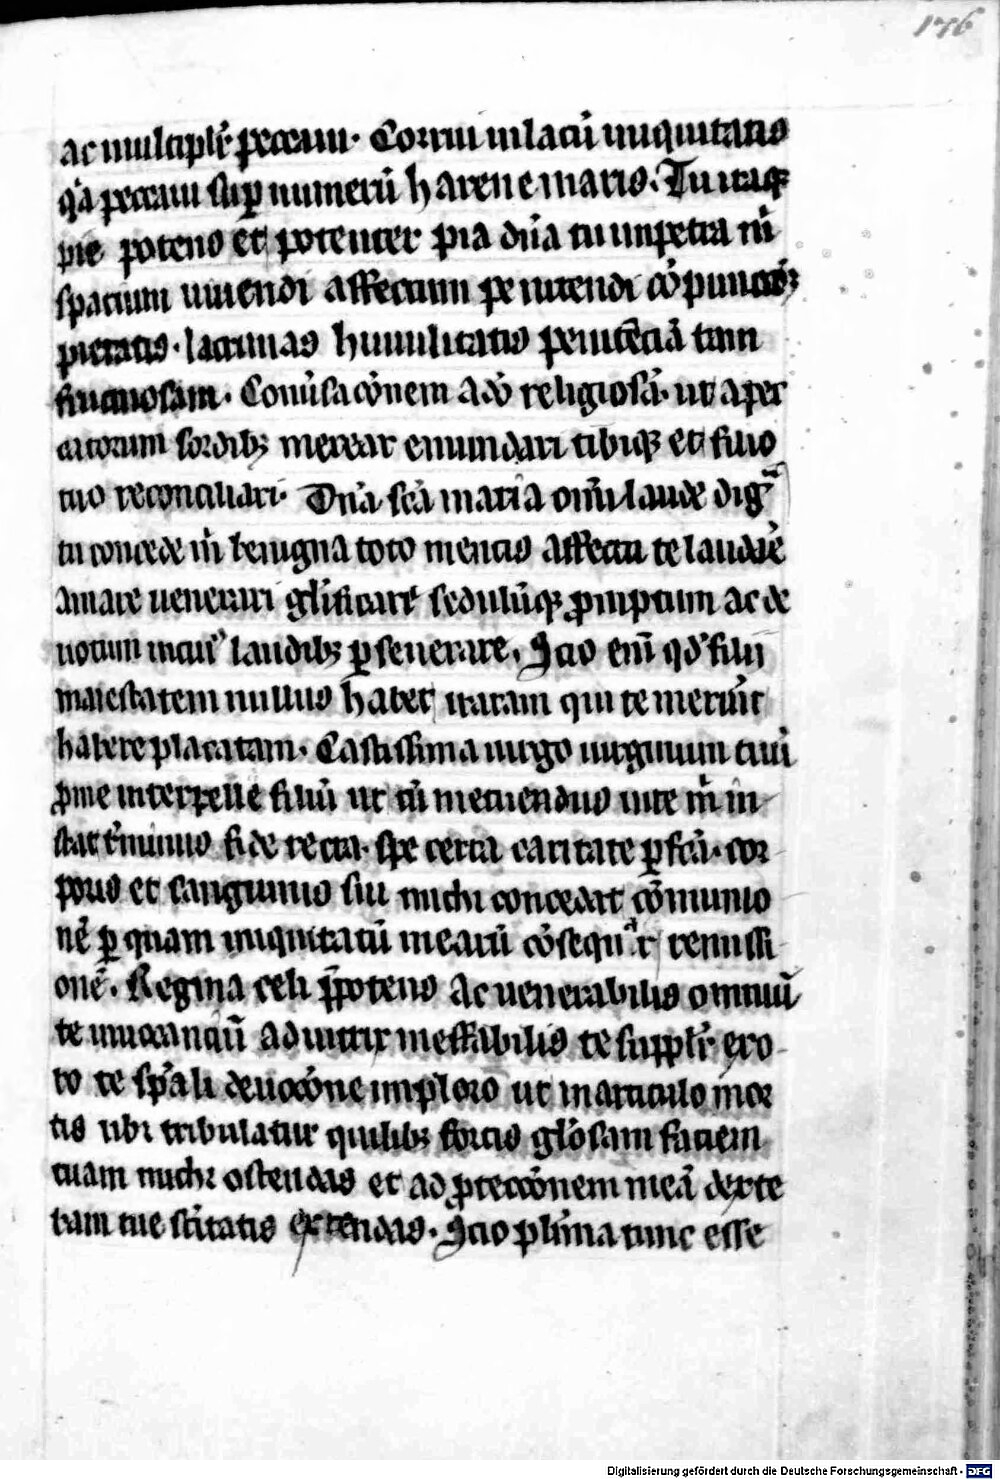 176
ac multiplr̄ peccaui. Corrui in lacū iniquitatis
q̄a peccaui sup̄ numerū harene maris. Tu itaq;
pie potens et potenter pia dn̄a tu impetra m̄
spacium uiuendi affectum penitendi cōpunccōē;
pietatis. lacrimas humilitatis penitēciā tam
fructuosam. Conūsacōnem adō religiosā. ut a pec
catorum sordib; merear emundari tibiq; et filio
tuo reconciliari. Dn̄a scā maria om̄i laude dig͞a
tu concede m̄ benigna toto mentis affectu te laudaē
amare uenerari gl̄ificare sedulūq; ꝓmptum ac de
uotum in tuis laudib; ꝑseuerare. Scio enī qd̓ filii
maiestatem nullus habet iratam qui te meruīt
habere placatam. Castissima uirgo uirginum tuū
ꝓ me interpelle filiū ut cū metuendus uite m̄ in
stat t̄minus fide recta. spe certa caritate ꝑfcā. cor
poris et sanguinis sui michi concedat cōmunio
nē ꝑ quam iniquitatū mearū cōsequar remissi
onē. Regina celi p̄potens ac uenerabilis omniū
te inuocanciū adiutrix ineffabilis te supplr̄ exo
ro te sp̄ali deuocōne imploro ut in articulo mor
tis ubi tribulatur quilib; fortis gl̄osam faciem
tuam michi ostendas et ad ꝓteccōnem meā dexte
ram tue sc̄itatis extendas. Scio pl̄ima tunc esse
Digitalisierung gefördert durch die Deutsche Forschungsgemeinschaft - DFG